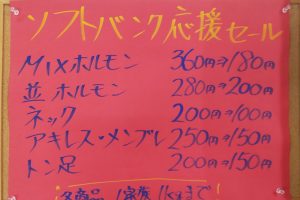 ソフトバンク応援セール
MIXホルモン 360円⇒180円
並ホルモン 280円⇒200円
ネック 200円⇒100円
アキレス・メンブレ 250円⇒150円
トン足 200円⇒150円
各商品 1家族 1kgまで